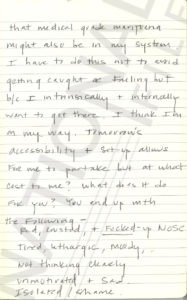 that medical grade marijuana
might also be in my system.
I have to do this not to avoid
getting caught or fueling but
b/c I intrinsically + internally
want to get there. I think I'm
on my way. Tomorrow's
accessibility + set up allows
for me to partake but at what
cost to me? What does it do
for you? You end up with
the following -
Red, crusted, + fucked-up NOSE
Tired, lethargic, moody,
Not thinking clearly
Unmotivated + Sad
Isolated / Shame